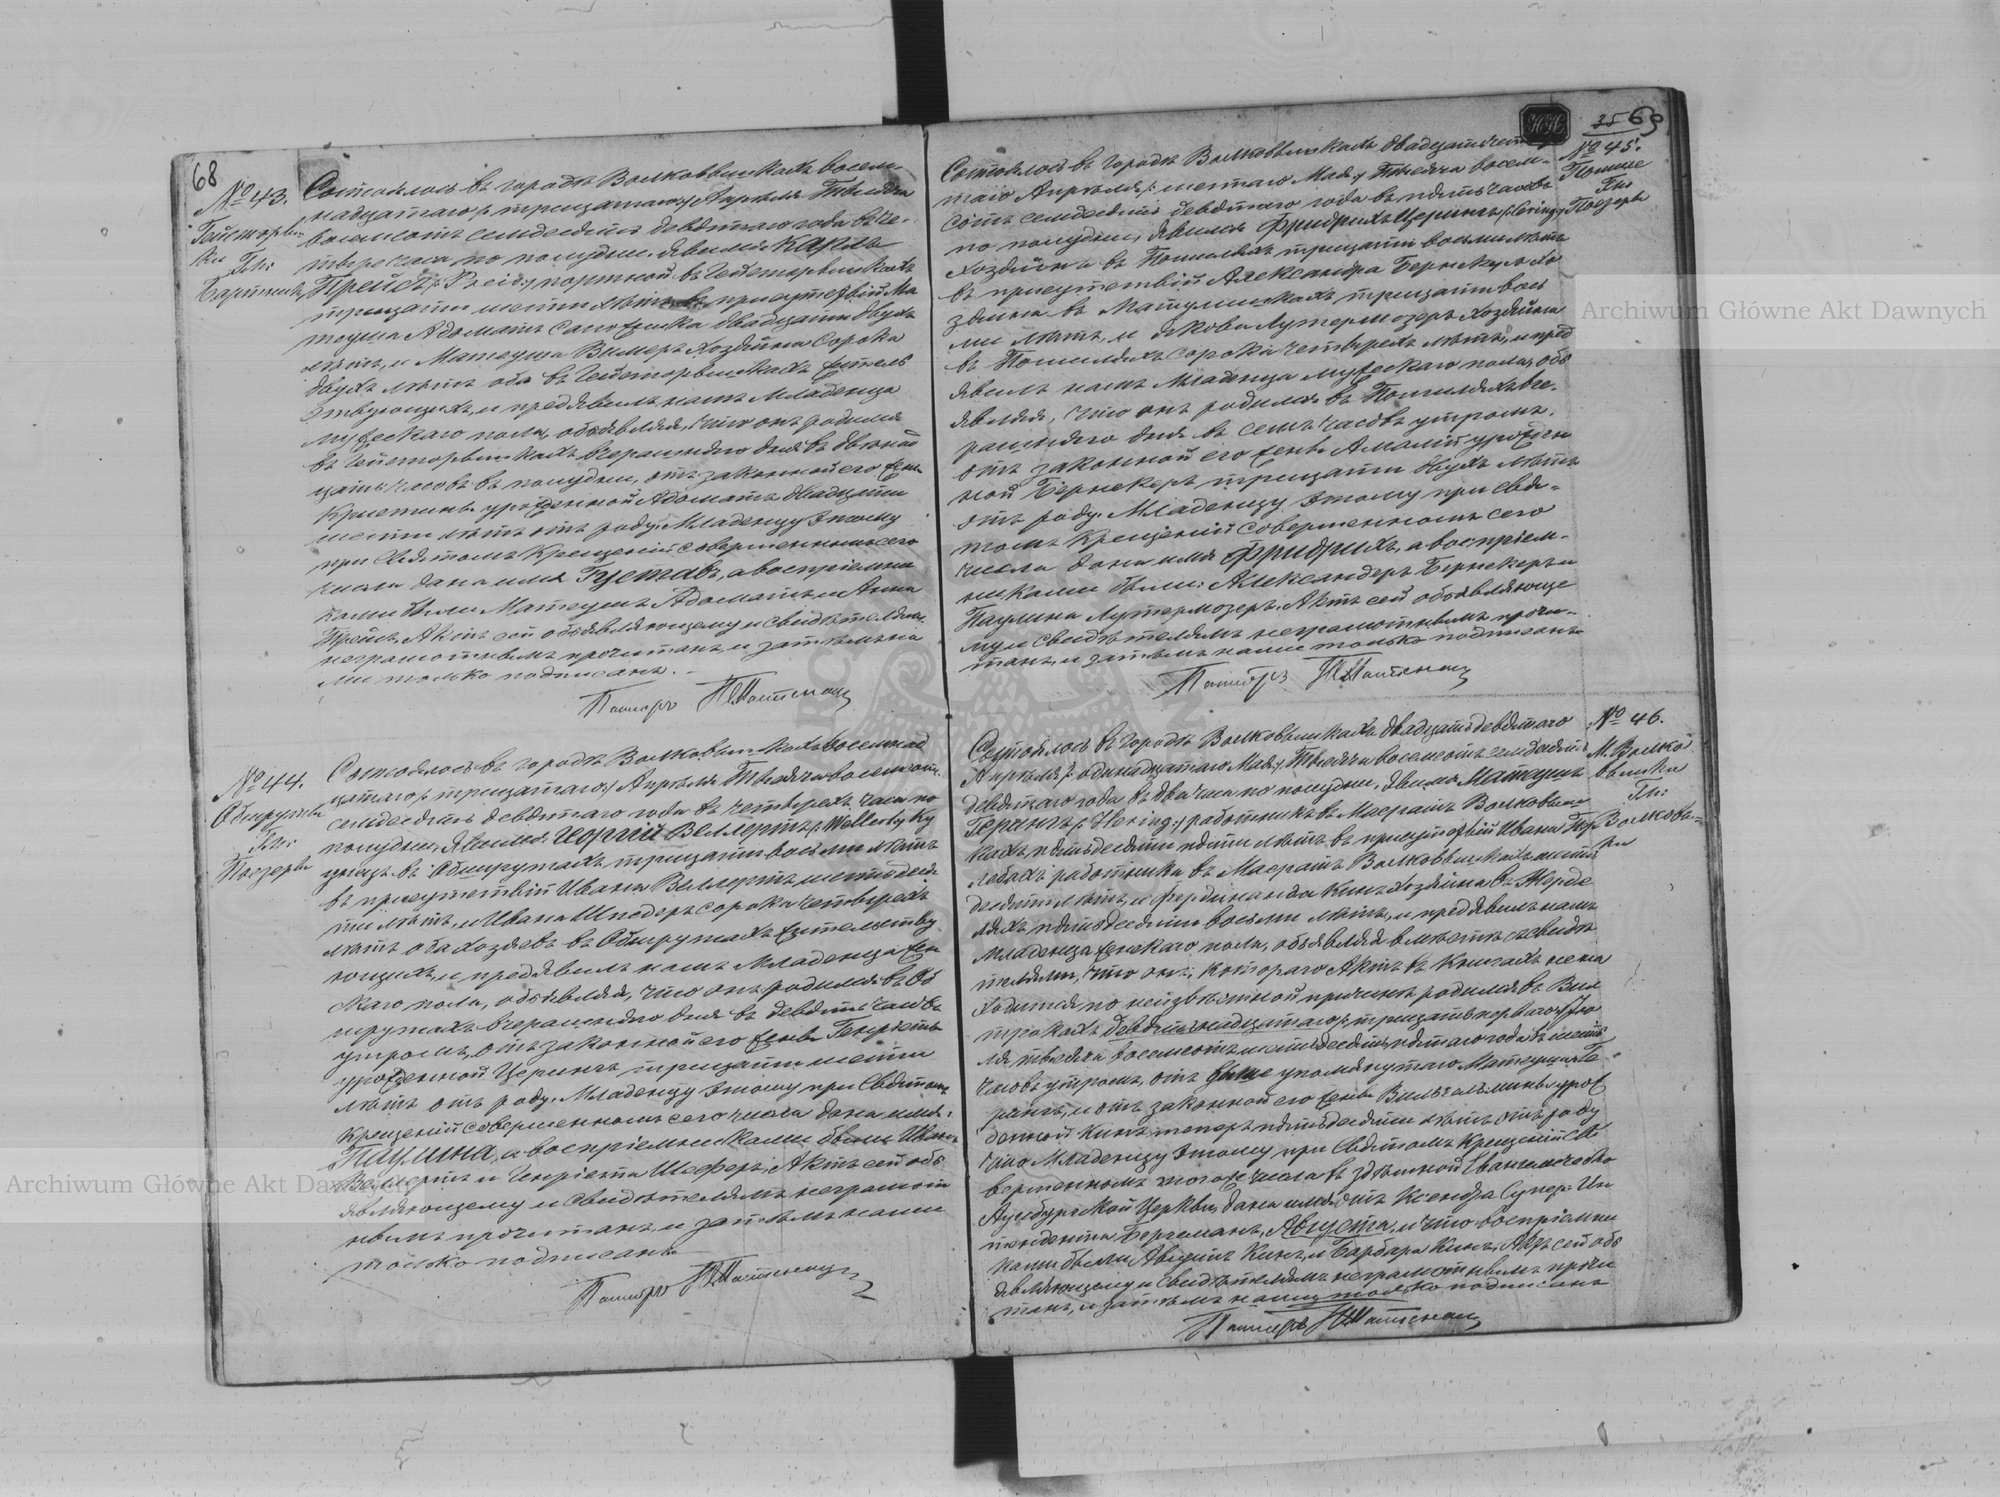 68
№ 43.
Гейсторвиш-
ки Гм:
Бартники
Состоялось въ городѣ Волковышкахъ восем-
надцатаго /: тридцатаго :/ Апрѣля Тысяча
восемсотъ семдесятъ девятаго года въ че-
тыре часа по полудни. Явился Карлъ
Прейсъ /: Preis :/ портной въ Гейсторвишкахъ
тридцати шести лѣтъ въ присутствіи Ма
теуша Адоматъ сапожника двадцати двухъ
лѣтъ, и Матеуша Вилеръ хозяина сорока
двухъ лѣтъ оба въ Гейсторвишкахъ житель
ствующихъ, и предъявилъ намъ Младенца
мужескаго пола, объявляя, что онъ родился
въ Гейсторвишкахъ вчерашняго дня въ двѣнад
цать часовъ въ полудни, отъ законной его жены
Кристины урожденной Адоматъ двадцати
шести лѣтъ отъ роду. Младенцу этому
при Святомъ Крещеніи совершенномъ сего
числа дано имя Густавъ, а воспріемни
ками были Матеушъ Адоматъ и Анна
Прейсъ. Актъ сей объявляющему и свидѣтелямъ
неграмотнымъ прочитанъ, и затѣмъ на
ми только подписанъ. -
Пасторъ
№ 44.
Обшруты
Гм:
Поезеры
Состоялось въ городѣ Волковышкахъ восемнад
цатаго /: тридцатаго :/ Апрѣля Тысяча восемсотъ
семдесятъ девятаго года въ четыре часа по
полудни, Явился Георгій Веллертъ /: Wellert :/ Ку
знецъ въ Обшрутахъ тридцати восьми лѣтъ
въ присутствіи Ивана Веллертъ шестидеся
ти лѣтъ, и Ивана Шнодеръ сорока четырехъ
лѣтъ оба хозяевъ въ Обшрутахъ жительству
ющихъ, и предъявилъ намъ Младенца жен
скаго пола, объявляя, что онъ родился въ Об
шрутахъ вчерашняго дня въ девять часовъ
утромъ, отъ законной его жены Генріеты
урожденной Церингъ тридцати шести
лѣтъ отъ роду. Младенцу этому при Святомъ
Крещеніи совершенномъ сего числа дано имя:
Паулина, а воспріемниками были Иванъ
Веллертъ и Генріета Шеферъ. Актъ сей объ
являющему и свидѣтелямъ неграмот
нымъ прочитанъ, и затѣмъ нами
только подписанъ
Пасторъ
35 69
№ 45.
Пошиле
Гм:
Поезеры
Состоялось въ городѣ Волковышкахъ двадцать четвер
таго Апрѣля /: шестаго Мая :/ Тысяча восем-
сотъ семдесятъ девятаго года въ пять часовъ
по полудни, явился Фридрихъ Церингъ /: Cering :/
хозяинъ въ Пошиляхъ тридцати восьми лѣтъ
въ присутствіи Александра Бернекеръ хо
зяина въ Матулишкахъ тридцати вось
ми лѣтъ, и Якова Лутермозеръ хозяина
въ Пошиляхъ сорока четырехъ лѣтъ, и пред
явилъ намъ Младенца мужескаго пола, объ
являя, что онъ родился въ Пошиляхъ вче-
рашняго дня въ семь часовъ утромъ.
отъ законной его жены Амаліи урожден
ной Бернекеръ тридцати двухъ лѣтъ
отъ роду. Младенцу этому при Свя-
томъ Крещеніи совершенномъ сего
числа дано имя Фридрихъ, а воспріем-
никами были: Александеръ Бернекеръ и
Паулина Лутермозеръ. Актъ сей объявляюще
му и свидѣтелямъ неграмотнымъ прочи-
танъ, и затѣмъ нами только подписанъ.
Пасторъ
№ 46.
М. Волко
вышки
Гм:
Волковы-
шки
Состоялось въ городѣ Волковышкахъ двадцать девятаго
Апрѣля /: одинадцатаго Мая :/ Тысяча восемсотъ семдесятъ
девятаго года въ два часа по полудни, явился Матеушъ
Герингъ /: Hering :/ работникъ въ Маератъ Волковыш
кахъ пятьдесяти пяти лѣтъ, въ присутствіи Ивана
работника въ Маератъ Волковышкахъ шести
десяти лѣтъ, и Фердинанда Кинъ хозяина въ
ляхъ пятьдесяти восьми лѣтъ, и предъявилъ намъ
младенца женскаго пола, объявляя вмѣстѣ съ свидѣ
телями, что онъ, котораго Актъ въ Книгахъ нена
ходится по неизвѣстной причинѣ родился въ Вил
тракахъ девятьнадцатаго /: тридцать перваго :/ Ію
ля тысяча восемсотъ шестьдесятъ пятаго года въ шесть
часовъ утромъ, отъ выше упомянутаго Матеуша Ге-
рингъ, и отъ законной его жены Вильгельмины урож
денной Кинъ теперь пятьдесяти лѣтъ отъ роду
что Младенцу этому при Святомъ Крещеніи со
вершенномъ того же числа въ здѣшной Евангелическо
Аугсбургской Церкви, дано имя отъ Ксендза Супер-Ин
тендента Бергеманъ, Августа, и что воспріемни
ками были, Августъ Кинъ, и Барбара Кинъ. Актъ сей объ
являющему и свидѣтелямъ неграмотнымъ прочи
танъ, и затѣмъ нами только подписанъ
Пасторъ
Archiwum Główne Akt Dawnych
Archiwum Główne Akt Dawnych